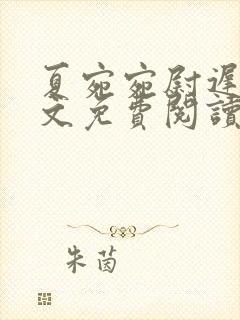 夏宛宛尉遲
文免費閱讀
朱茵